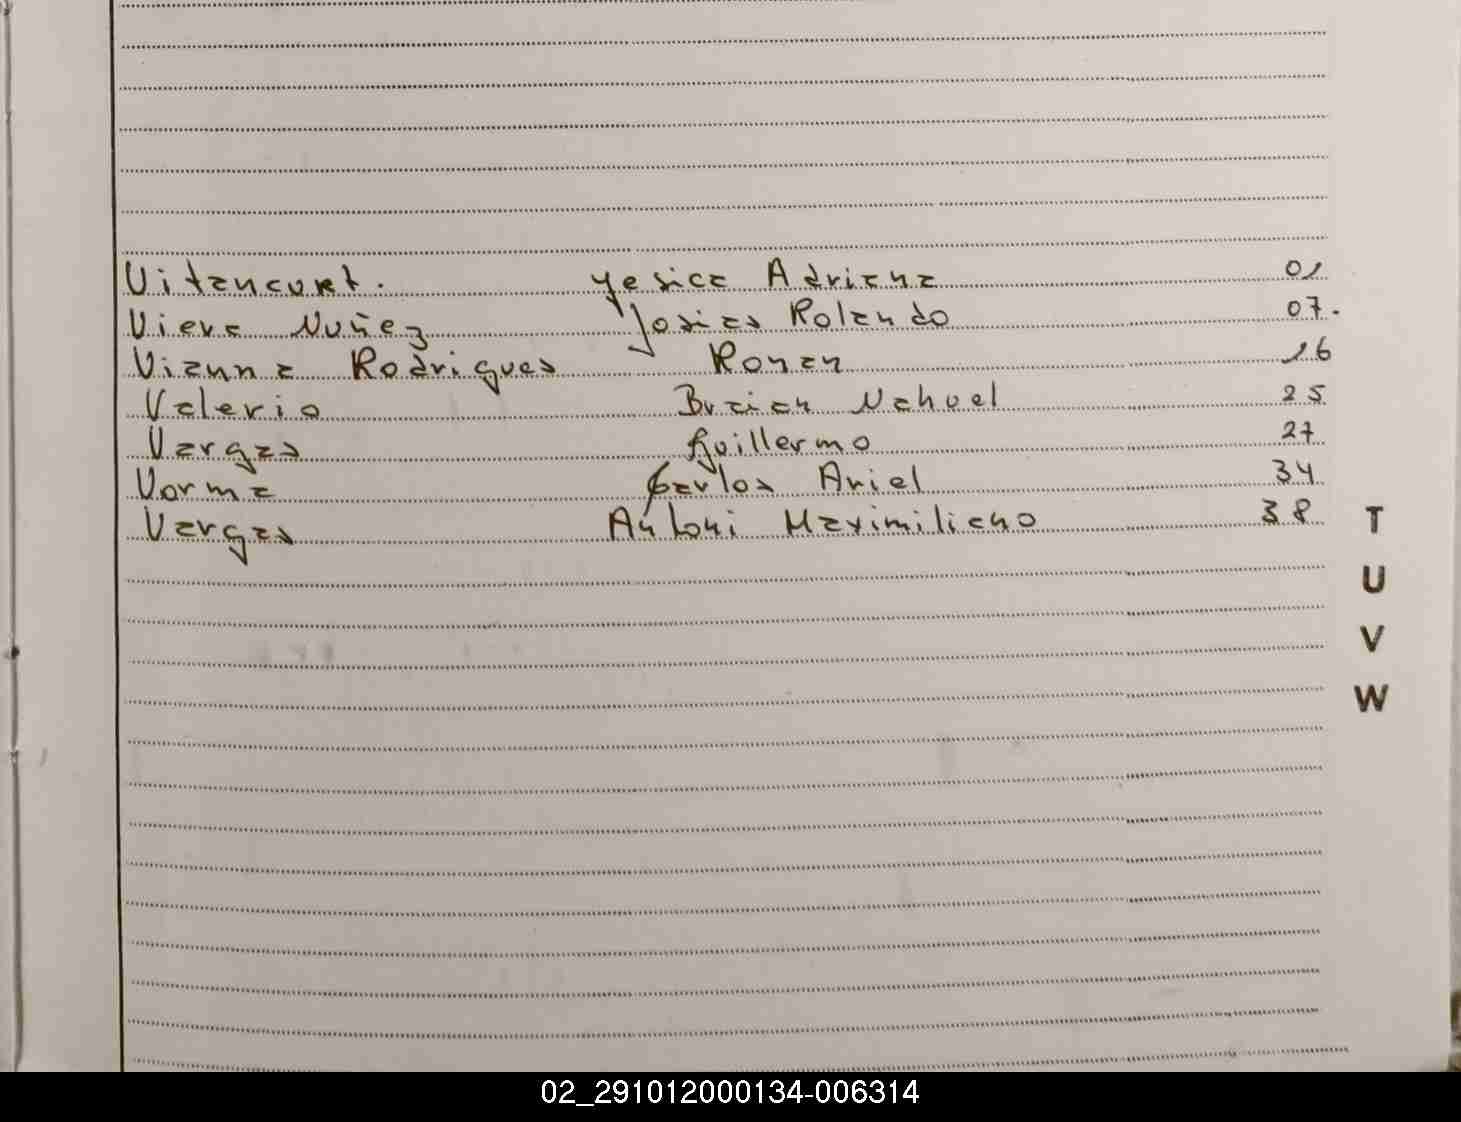 Vitancurt. Yesica Adriana 01
Viera Nuñez Josias Rolando 07.
Vianna Rodrigues Ronan 16
Valerio Braian Nahuel 25
Vargas Guillermo 27
Vorma Carlos Ariel 34
Vargas Antoni Maximiliano 38
T
U
V
W
02_291012000134-006314